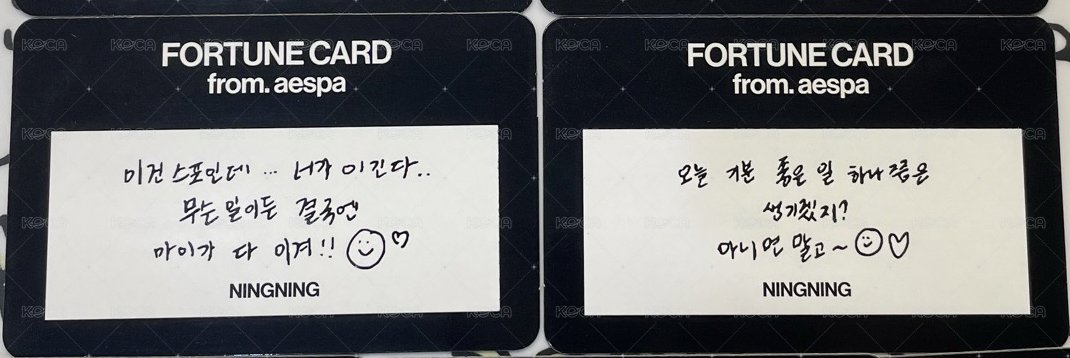 FORTUNE CARD
from. aespa
이건 스포인데 ... 너가 이긴다..
무슨 일이든 결국엔
마이가 다 이겨!! ☺♡
NINGNING
FORTUNE CARD
from. aespa
오늘 기분 좋은 일 하나쯤은
생기겠지?
아니면 말고~ ☺♡
NINGNING
KOCA